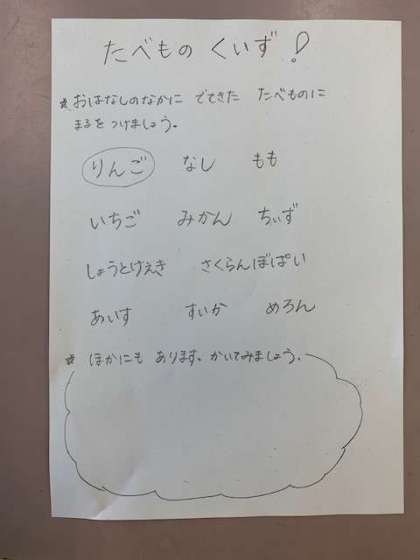 たべもの くいず!
* おはなしのなかに でてきた たべものに
まるを つけましょう。
りんご なし もも
いちご みかん ちいず
しょうとけえき さくらんぼぱい
あいす すいか めろん
* ほかにも あります。かいてみましょう。